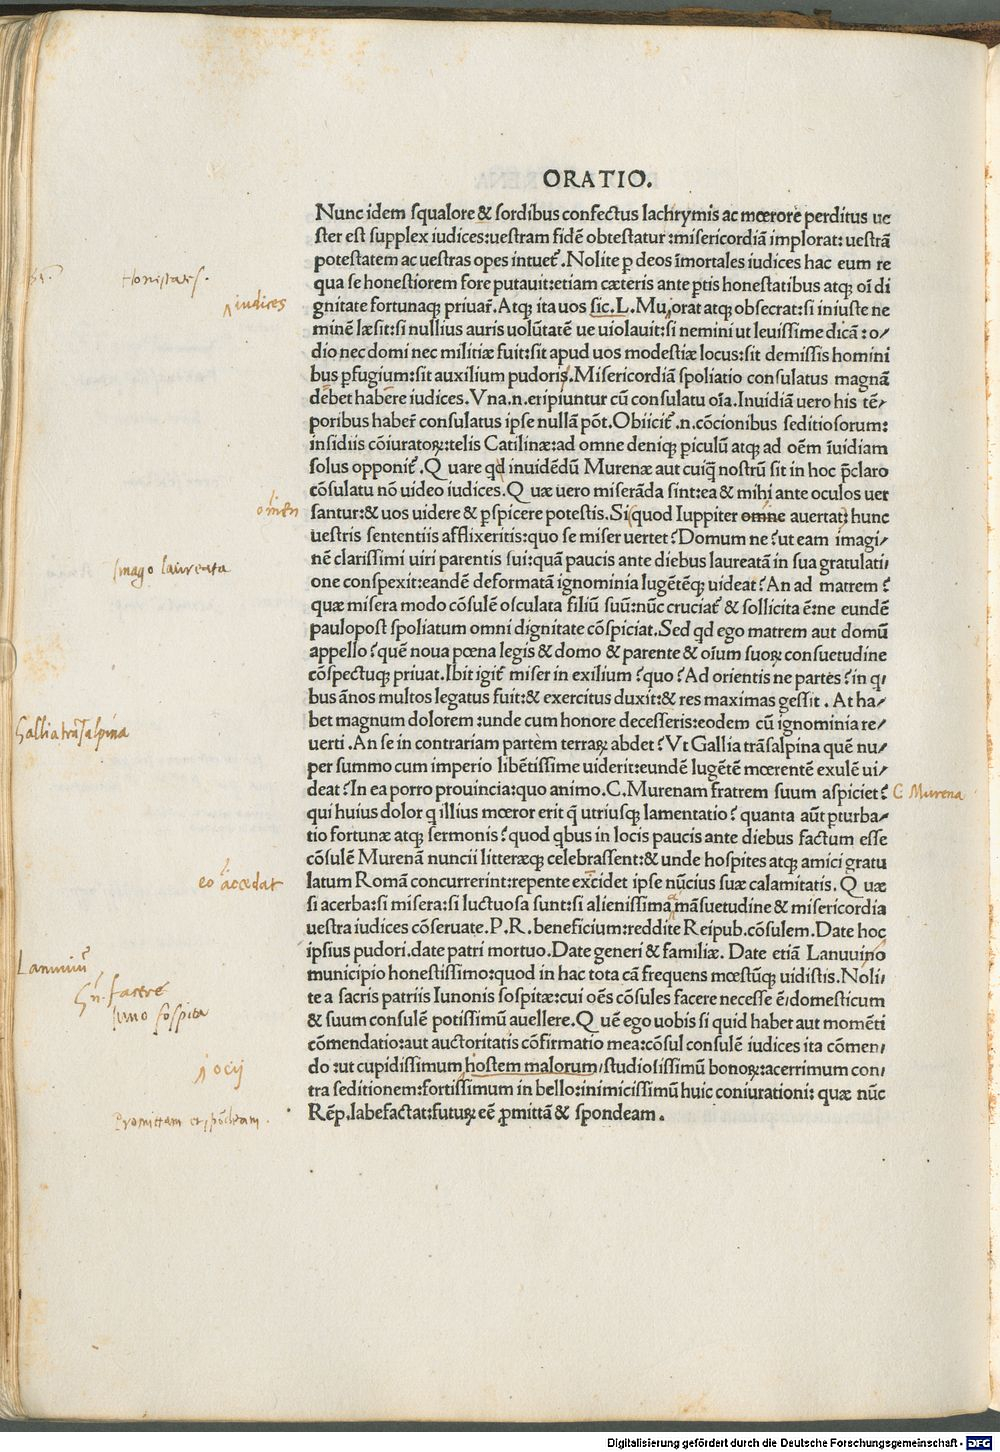 ORATIO.
Nunc idem squalore & sordibus confectus lachrymis ac mœrore perditus ue
ster est supplex iudices:uestram fidẽ obtestatur :misericordiã implorat: uestrã
potestatem ac uestras opes intuet᷑. Nolite p̱ deos ĩmortales iudices hac eum re
qua se honestiorem fore putauit:etiam cæteris ante p̱tis honestatibus atq; oĩ di
gnitate fortunaq; priuar̃. Atq; ita uos sic.L.Mu, orat atq; obsecrat:si iniuste ne
minẽ læsit:si nullius auris uolũtatẽ ue uiolauit:si nemini ut leuissime dicã : o/
dio nec domi nec militiæ fuit:sit apud uos modestiæ locus:sit demissis homini
bus p̱fugium:sit auxilium pudoris.Misericordiã spoliatio consulatus magnã
debet habere iudices.Vna.n.eripiuntur cũ consulatu oĩa.Inuidiã uero his tẽ/
poribus haber̃ consulatus ipse nullã põt. Obiicit᷑ .n.cõcionibus seditiosorum:
insidiis cõiuratoꝝ:telis Catilinæ:ad omne deniq; p̱iculũ atq; ad oẽm ĩuidiam
solus opponit᷑ .Q uare qd inuidẽdũ Murenæ aut cuiq̃ nostrũ sit in hoc p̃claro
cõsulatu nõ uideo iudices.Q uæ uero miserãda sint:ea & mihi ante oculos uer
santur:& uos uidere & p̱spicere potestis.Si(quod Iuppiter omine auertat) hunc
uestris sententiis afflixeritis:quo se miser uertet?Domum ne?ut eam imagi/
nẽ clarissimi uiri parentis sui:quã paucis ante diebus laureatã in sua gratulati/
one conspexit:eandẽ deformatã ignominia lugẽtẽq; uideat?An ad matrem?
quæ misera modo cõsulẽ osculata filiũ suũ:nũc cruciat᷑ & sollicita ẽ:ne eundẽ
paulopost spoliatum omni dignitate cõspiciat.Sed qd ego matrem aut domũ
appello?quẽ noua pœna legis & domo & parente & oĩum suoꝝ consuetudine
cõspectuq; priuat.Ibit igit᷑ miser in exilium?quo?Ad orientis ne partes?in q/
bus ãnos multos legatus fuit:& exercitus duxit:& res maximas gessit . At ha/
bet magnum dolorem :unde cum honore decesseris:eodem cũ ignominia re/
uerti .An se in contrariam partem terraꝝ abdet?Vt Gallia trãsalpina quẽ nu/
per summo cum imperio libẽtissime uiderit:eundẽ lugẽtẽ mœrentẽ exulẽ ui/
deat?In ea porro prouincia:quo animo.C.Murenam fratrem suum aspiciet?
qui huius dolor q illius mœror erit q̃ utriusq; lamentatio? quanta aũt p̱turba/
tio fortunæ atq; sermonis?quod qbus in locis paucis ante diebus factum esse
cõsulẽ Murenã nuncii litteræq; celebrassent:& unde hospites atq; amici gratu
latum Romã concurrerint:repente excidet ipse nũcius suæ calamitatis. Q uæ
si acerba:si misera:si luctuosa sunt:si alienissima mãsuetudine & misericordia
uestra iudices cõseruate.P.R.beneficium:reddite Reipub.cõsulem.Date hoc
ipsius pudori.date patri mortuo.Date generi & familiæ. Date etiã Lanuuino
municipio honestissimo:quod in hac tota cã frequens mœstũq; uidistis.Noli/
te a sacris patriis Iunonis sospitæ:cui oẽs cõsules facere necesse ẽ:domesticum
& suum consulẽ potissimũ auellere. Q uẽ ego uobis si quid habet aut momẽti
cõmendatio:aut auctoritatis cõfirmatio mea:cõsul consulẽ iudices ita cõmen/
do :ut cupidissimum hostem malorum/studiosissimũ bonoꝝ:acerrimum con/
tra seditionem:fortissimum in bello:inimicissimũ huic coniurationi: quæ nũc
Rẽp.labefactat:futuꝝ eẽ p̱mittã & spondeam .
Honestates.
iudices
omen
Imago laureata
Gallia trãsalpina
C Murena
eo accedat
Lanuuiũ
Gñ. facere
Iuno sospita
ocij
Promittam et spõdeam.
Digitalisierung gefördert durch die Deutsche Forschungsgemeinschaft - DFG